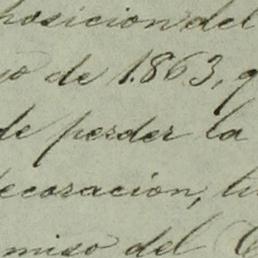 posicion del
yo de 1.863, q
de perder la
ecoración, tu
miso del C